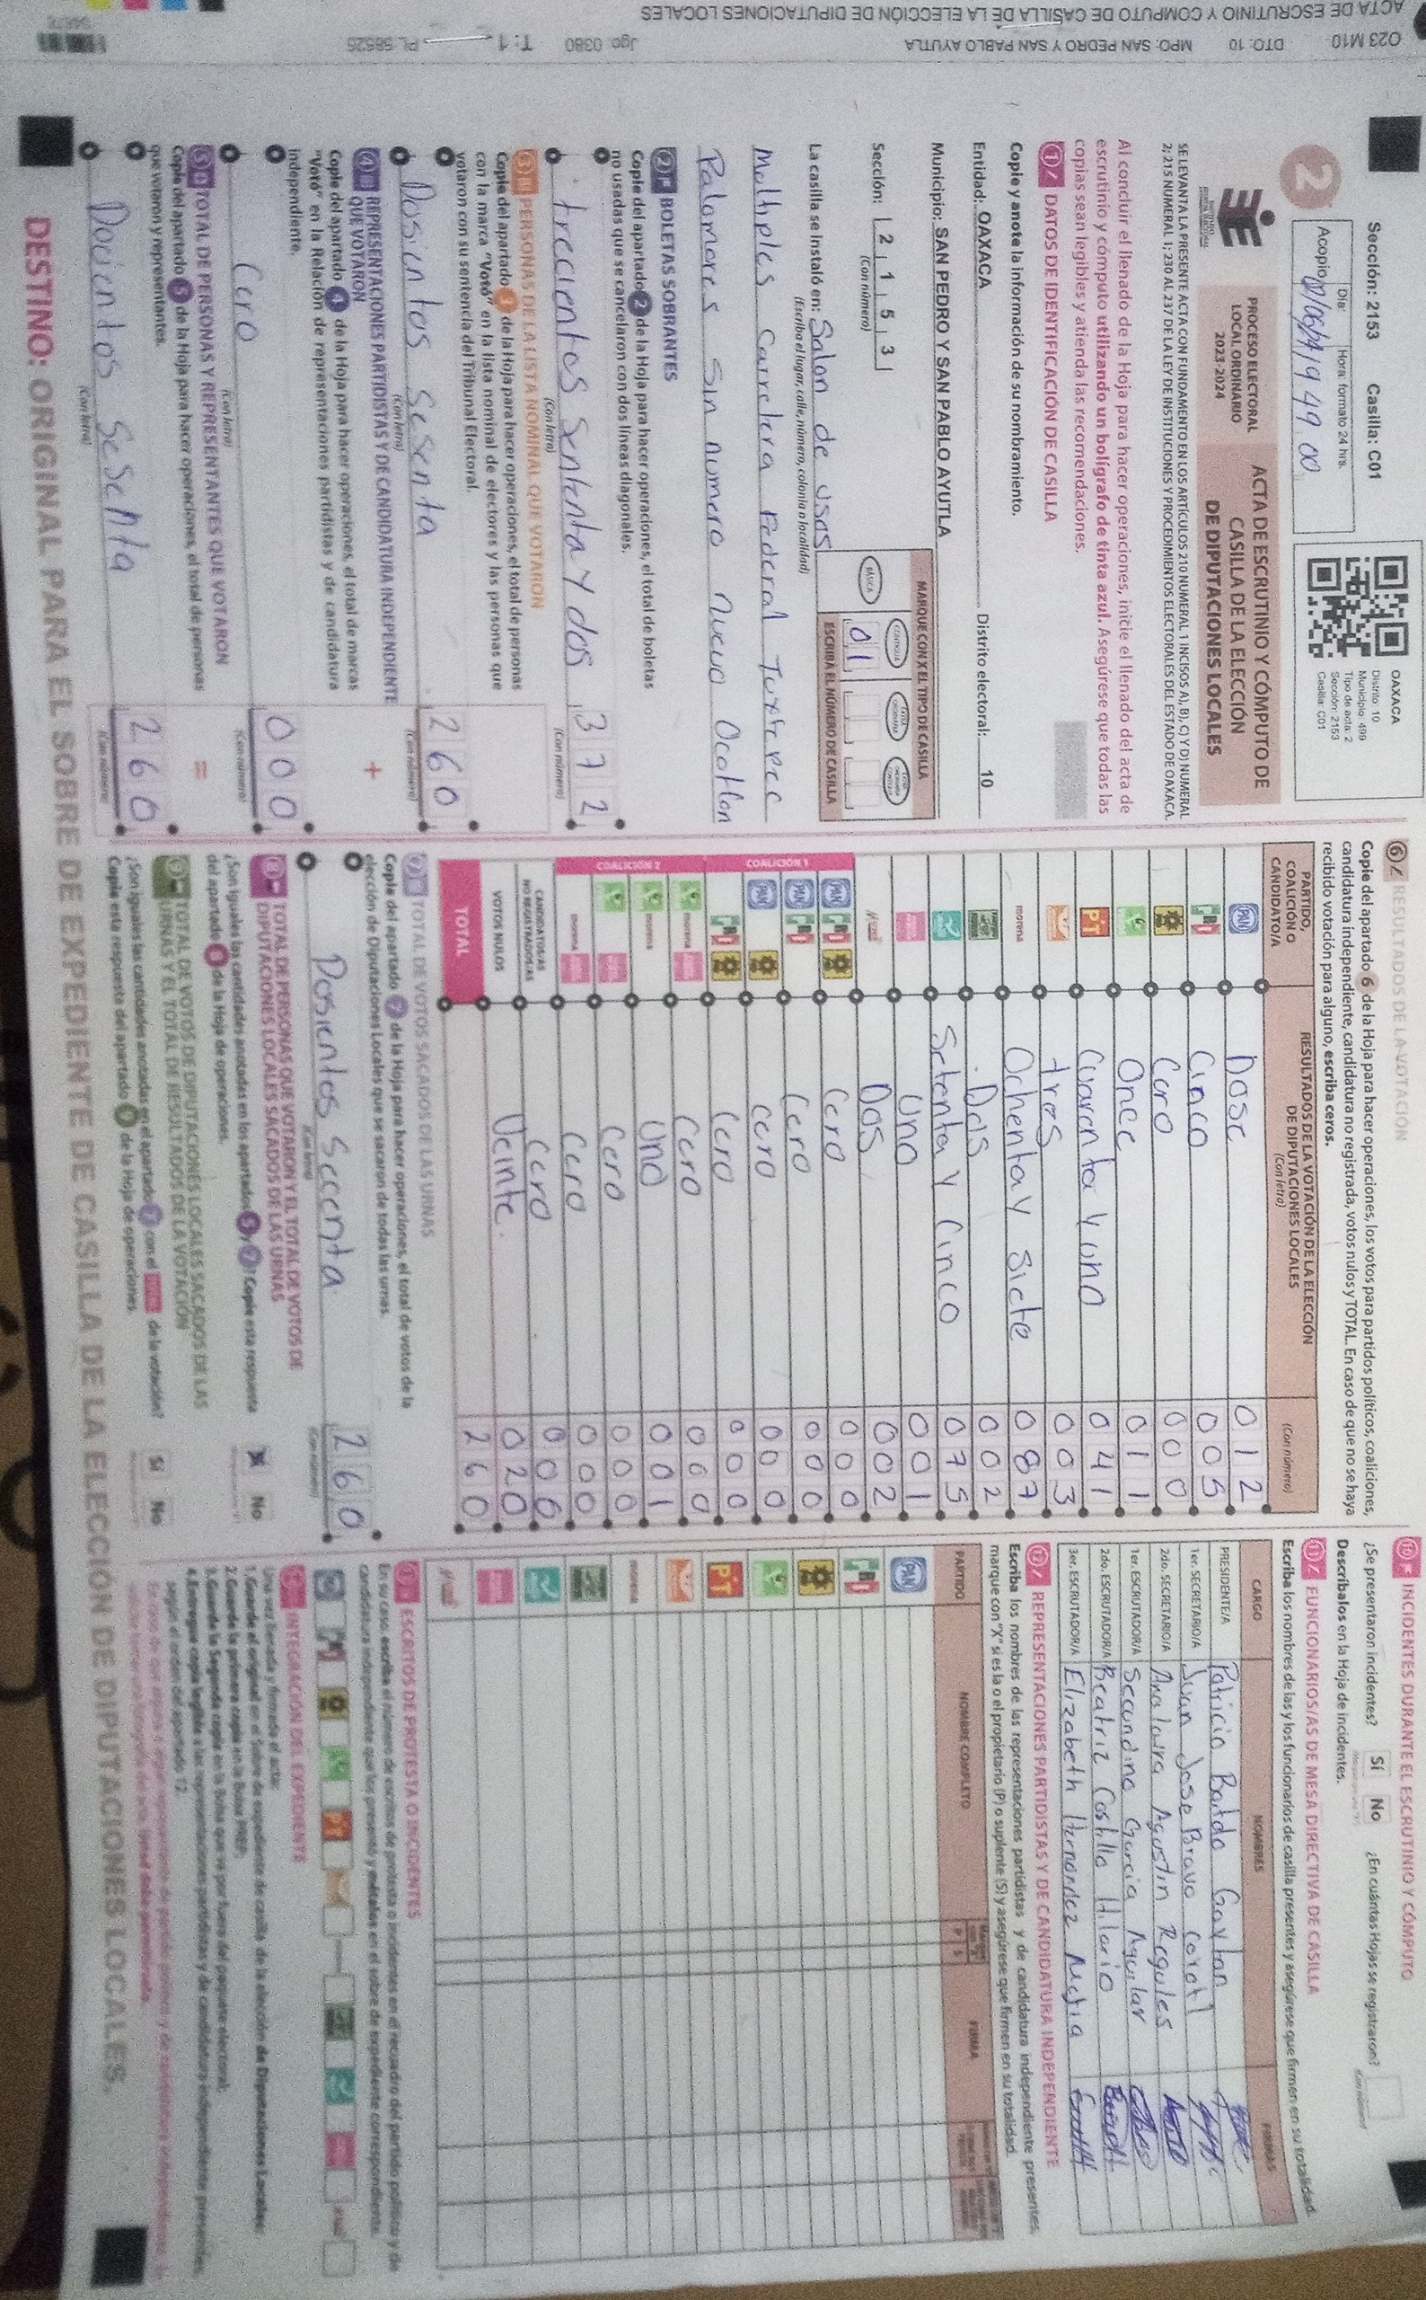 ACTA DE ESCRUTINIO Y CÓMPUTO DE CASILLA DE LA ELECCIÓN DE DIPUTACIONES LOCALES
O23 M10 DTO: 10 MPO: SAN PEDRO Y SAN PABLO AYUTLA Jgo: 0380 T: 1 PL: 58525
Sección: 2153 Casilla: C01
2
Día: Hora: formato 24 hrs.
Acopio
OAXACA
Distrito: 10
Municipio: 499
Tipo de acta: 2
Sección: 2153
Casilla: C01
PROCESO ELECTORAL
LOCAL ORDINARIO
2023-2024
ACTA DE ESCRUTINIO Y CÓMPUTO DE
CASILLA DE LA ELECCIÓN
DE DIPUTACIONES LOCALES
SE LEVANTA LA PRESENTE ACTA CON FUNDAMENTO EN LOS ARTÍCULOS 210 NUMERAL 1 INCISOS A), B), C) Y D) NUMERAL
2; 215 NUMERAL 1; 230 AL 237 DE LA LEY DE INSTITUCIONES Y PROCEDIMIENTOS ELECTORALES DEL ESTADO DE OAXACA.
Al concluir el llenado de la Hoja para hacer operaciones, inicie el llenado del acta de
escrutinio y cómputo utilizando un bolígrafo de tinta azul. Asegúrese que todas las
copias sean legibles y atienda las recomendaciones.
1 DATOS DE IDENTIFICACIÓN DE CASILLA
Copie y anote la información de su nombramiento.
Entidad: OAXACA Distrito electoral: 10
Municipio: SAN PEDRO Y SAN PABLO AYUTLA
Sección: 2 1 5 3
(Con número)
MARQUE CON X EL TIPO DE CASILLA
BÁSICA
01
ESCRIBA EL NÚMERO DE CASILLA
La casilla se instaló en: Salon de usos
(Escriba el lugar, calle, número, colonia o localidad)
Malhples Carretera Federal Tuxtepec
Palomares sin numero nuevo Ocotlan
2 BOLETAS SOBRANTES
Copie del apartado 2 de la Hoja para hacer operaciones, el total de boletas
no usadas que se cancelaron con dos líneas diagonales.
trecientos sententa y dos 372
(Con letra) (Con número)
3 PERSONAS DE LA LISTA NOMINAL QUE VOTARON
Copie del apartado 3 de la Hoja para hacer operaciones, el total de personas
con la marca "Votó" en la lista nominal de electores y las personas que
votaron con su sentencia del Tribunal Electoral.
Dosientos sesenta 260
(Con letra) (Con número)
4 REPRESENTACIONES PARTIDISTAS Y DE CANDIDATURA INDEPENDIENTE
QUE VOTARON
Copie del apartado 4 de la Hoja para hacer operaciones, el total de marcas
"Votó" en la Relación de representaciones partidistas y de candidatura
independiente.
+
Cero 000
(Con letra) (Con número)
5 TOTAL DE PERSONAS Y REPRESENTANTES QUE VOTARON
Copie del apartado 5 de la Hoja para hacer operaciones, el total de personas
que votaron y representantes.
=
Docientos sesenta 260
(Con letra) (Con número)
6 RESULTADOS DE LA VOTACIÓN
Copie del apartado 6 de la Hoja para hacer operaciones, los votos para partidos políticos, coaliciones,
candidatura independiente, candidatura no registrada, votos nulos y TOTAL. En caso de que no se haya
recibido votación para alguno, escriba ceros.
PARTIDO, COALICIÓN O CANDIDATO/A
RESULTADOS DE LA VOTACIÓN DE LA ELECCIÓN DE DIPUTACIONES LOCALES
(Con letra) (Con número)
PAN Dose 012
PRI Cinco 005
Cero 000
Once 011
PT Cuarenta y uno 041
tres 003
morena Ochenta y siete 087
Dos 002
Setenta y Cinco 075
Uno 001
Dos 002
COALICIÓN 1
PAN PRI Cero 000
PAN PRI Cero 000
PAN cero 000
PRI Cero 000
COALICIÓN 2
morena Cero 000
morena Uno 001
Cero 000
morena Cero 000
CANDIDATOS/AS NO REGISTRADOS/AS Cero 000
VOTOS NULOS Veinte. 020
TOTAL 260
7 TOTAL DE VOTOS SACADOS DE LAS URNAS
Copie del apartado 7 de la Hoja para hacer operaciones, el total de votos de la
elección de Diputaciones Locales que se sacaron de todas las urnas.
Dosientos secenta 260
(Con letra) (Con número)
8 TOTAL DE PERSONAS QUE VOTARON Y EL TOTAL DE VOTOS DE
DIPUTACIONES LOCALES SACADOS DE LAS URNAS
¿Son iguales las cantidades anotadas en los apartados 5 y 7? Copie esta respuesta
del apartado 8 de la Hoja de operaciones. No
9 TOTAL DE VOTOS DE DIPUTACIONES LOCALES SACADOS DE LAS
URNAS Y EL TOTAL DE RESULTADOS DE LA VOTACIÓN
¿Son iguales las cantidades anotadas en el apartado 7 con el TOTAL de la votación?
Copie esta respuesta del apartado 9 de la Hoja de operaciones. Sí No
10 INCIDENTES DURANTE EL ESCRUTINIO Y CÓMPUTO
¿Se presentaron incidentes? Sí No ¿En cuántas Hojas se registraron?
Descríbalos en la Hoja de incidentes.
11 FUNCIONARIOS/AS DE MESA DIRECTIVA DE CASILLA
Escriba los nombres de las y los funcionarios de casilla presentes y asegúrese que firmen en su totalidad.
CARGO NOMBRES FIRMAS
PRESIDENTE/A Patricia Gaytan
1er. SECRETARIO/A Juan Jose Bravo
2do. SECRETARIO/A Analaura Agustin Regules
1er. ESCRUTADOR/A Secundina Garcia Aguilar
2do. ESCRUTADOR/A Beatriz Costilla Hilario
3er. ESCRUTADOR/A Elizabeth Hernandez Mejia
12 REPRESENTACIONES PARTIDISTAS Y DE CANDIDATURA INDEPENDIENTE
Escriba los nombres de las representaciones partidistas y de candidatura independiente presentes,
marque con "X" si es la o el propietario (P) o suplente (S) y asegúrese que firmen en su totalidad.
PARTIDO NOMBRE COMPLETO P S FIRMA
PAN
PRI
PT
morena
13 ESCRITOS DE PROTESTA O INCIDENTES
En su caso, escriba el número de escritos de protesta o incidentes en el recuadro del partido político y de
candidatura independiente que los presentó y métalos en el sobre de expediente correspondiente.
14 INTEGRACIÓN DEL EXPEDIENTE
Una vez llenada y firmada el acta:
1. Guarde el original en el Sobre de expediente de casilla de la elección de Diputaciones Locales;
2. Guarde la primera copia en la Bolsa PREP;
3. Guarde la segunda copia en la Bolsa que va por fuera del paquete electoral;
4. Entregue copia legible a las representaciones partidistas y de candidatura independiente presentes,
según el orden del apartado 12.
DESTINO: ORIGINAL PARA EL SOBRE DE EXPEDIENTE DE CASILLA DE LA ELECCIÓN DE DIPUTACIONES LOCALES.